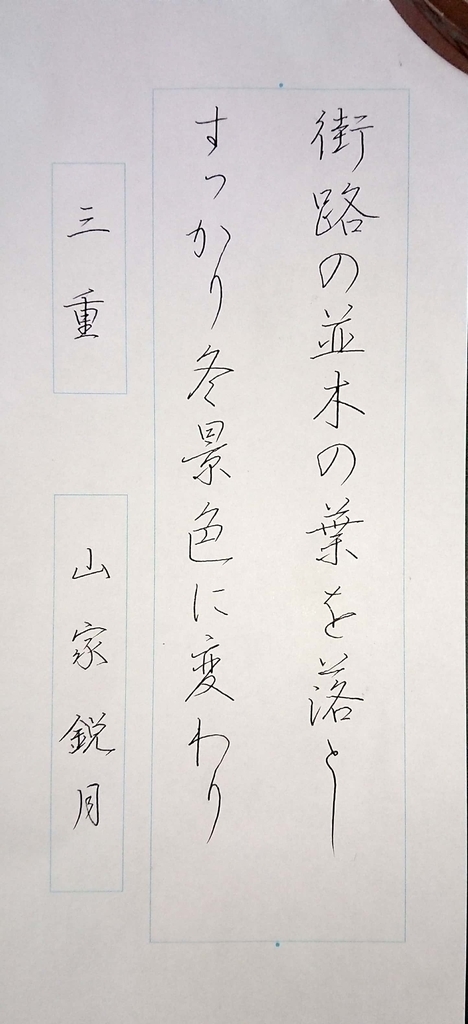 街路の並木の葉を落とし
すっかり冬景色に変わり
三重
山家鋭月